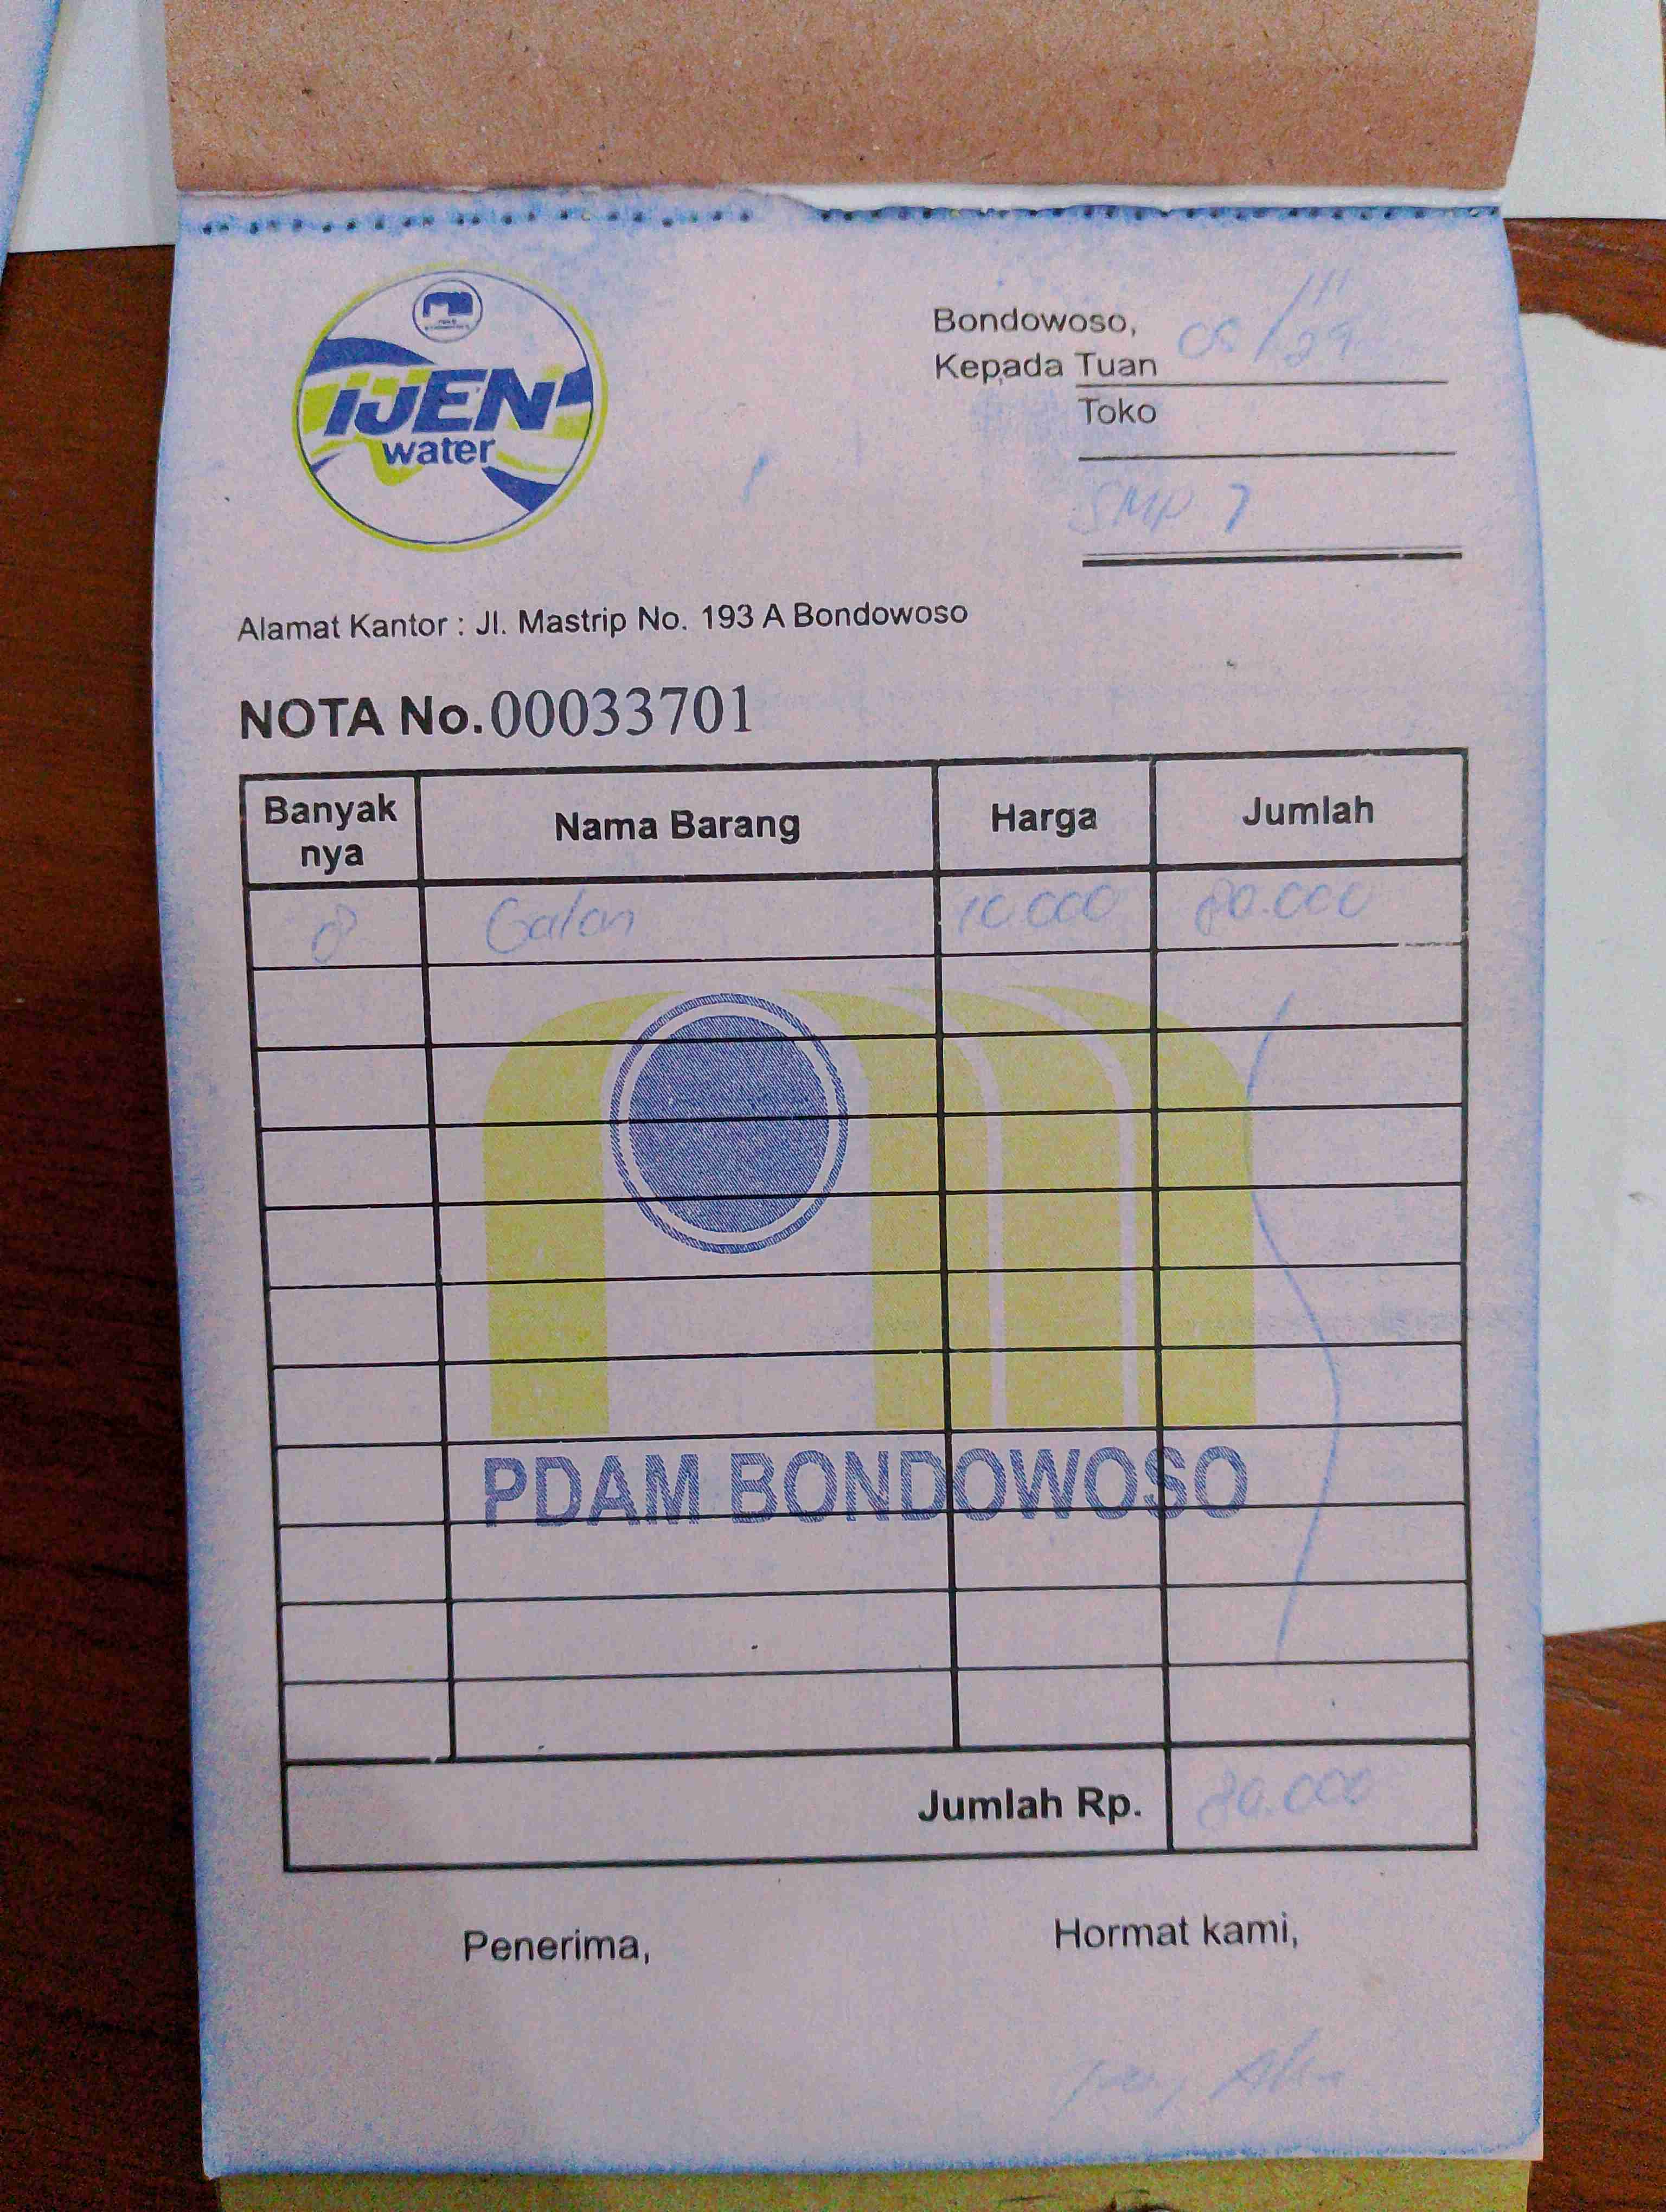 IJEN
water
Bondowoso,
Kepada Tuan
Toko
SMP 7
Alamat Kantor : Jl. Mastrip No. 193 A Bondowoso
NOTA No. 00033701
Banyak nya Nama Barang Harga Jumlah
8 Galon 10.000 80.000
PDAM BONDOWOSO
Jumlah Rp. 80.000
Penerima, Hormat kami,